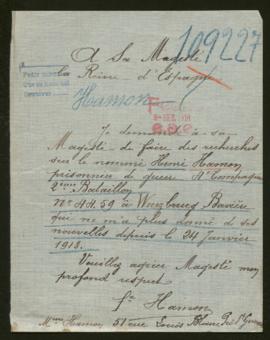 109227
A Sa Majesté
la Reine d'Espagne
Hamon
Je demande à sa
Majesté de faire des recherches
sur le nommé Henri Hamon
prisonnier de guerre 4e Compagnie
2eme Bataillon
No 4459 à Wurzburg Bavière
qui ne m'a plus donné de ses
nouvelles depuis le 24 Janvier
1918.
Veuillez agréer Majesté mon
profond respect
Hamon
Mme Hamon, 51 rue Louis Blanc